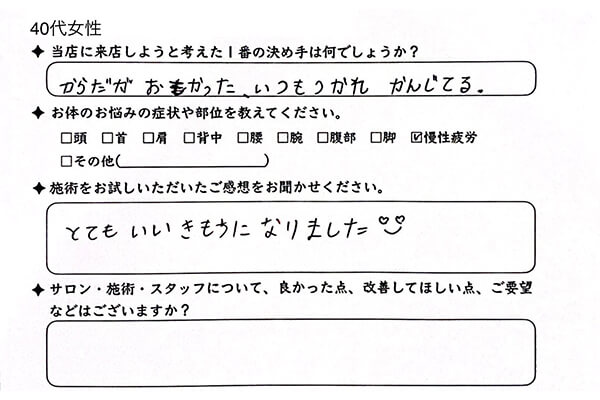 40代女性
✦ 当店に来店しようと考えた1番の決め手は何でしょうか?
からだが おもかった、いつもつかれ かんじてる。
✦ お体のお悩みの症状や部位を教えてください。
□頭 □首 □肩 □背中 □腰 □腕 □腹部 □脚 ☑慢性疲労
□その他( )
✦ 施術をお試しいただいたご感想をお聞かせください。
とても いい きもちに なりました
✦ サロン・施術・スタッフについて、良かった点、改善してほしい点、ご要望
などはございますか?